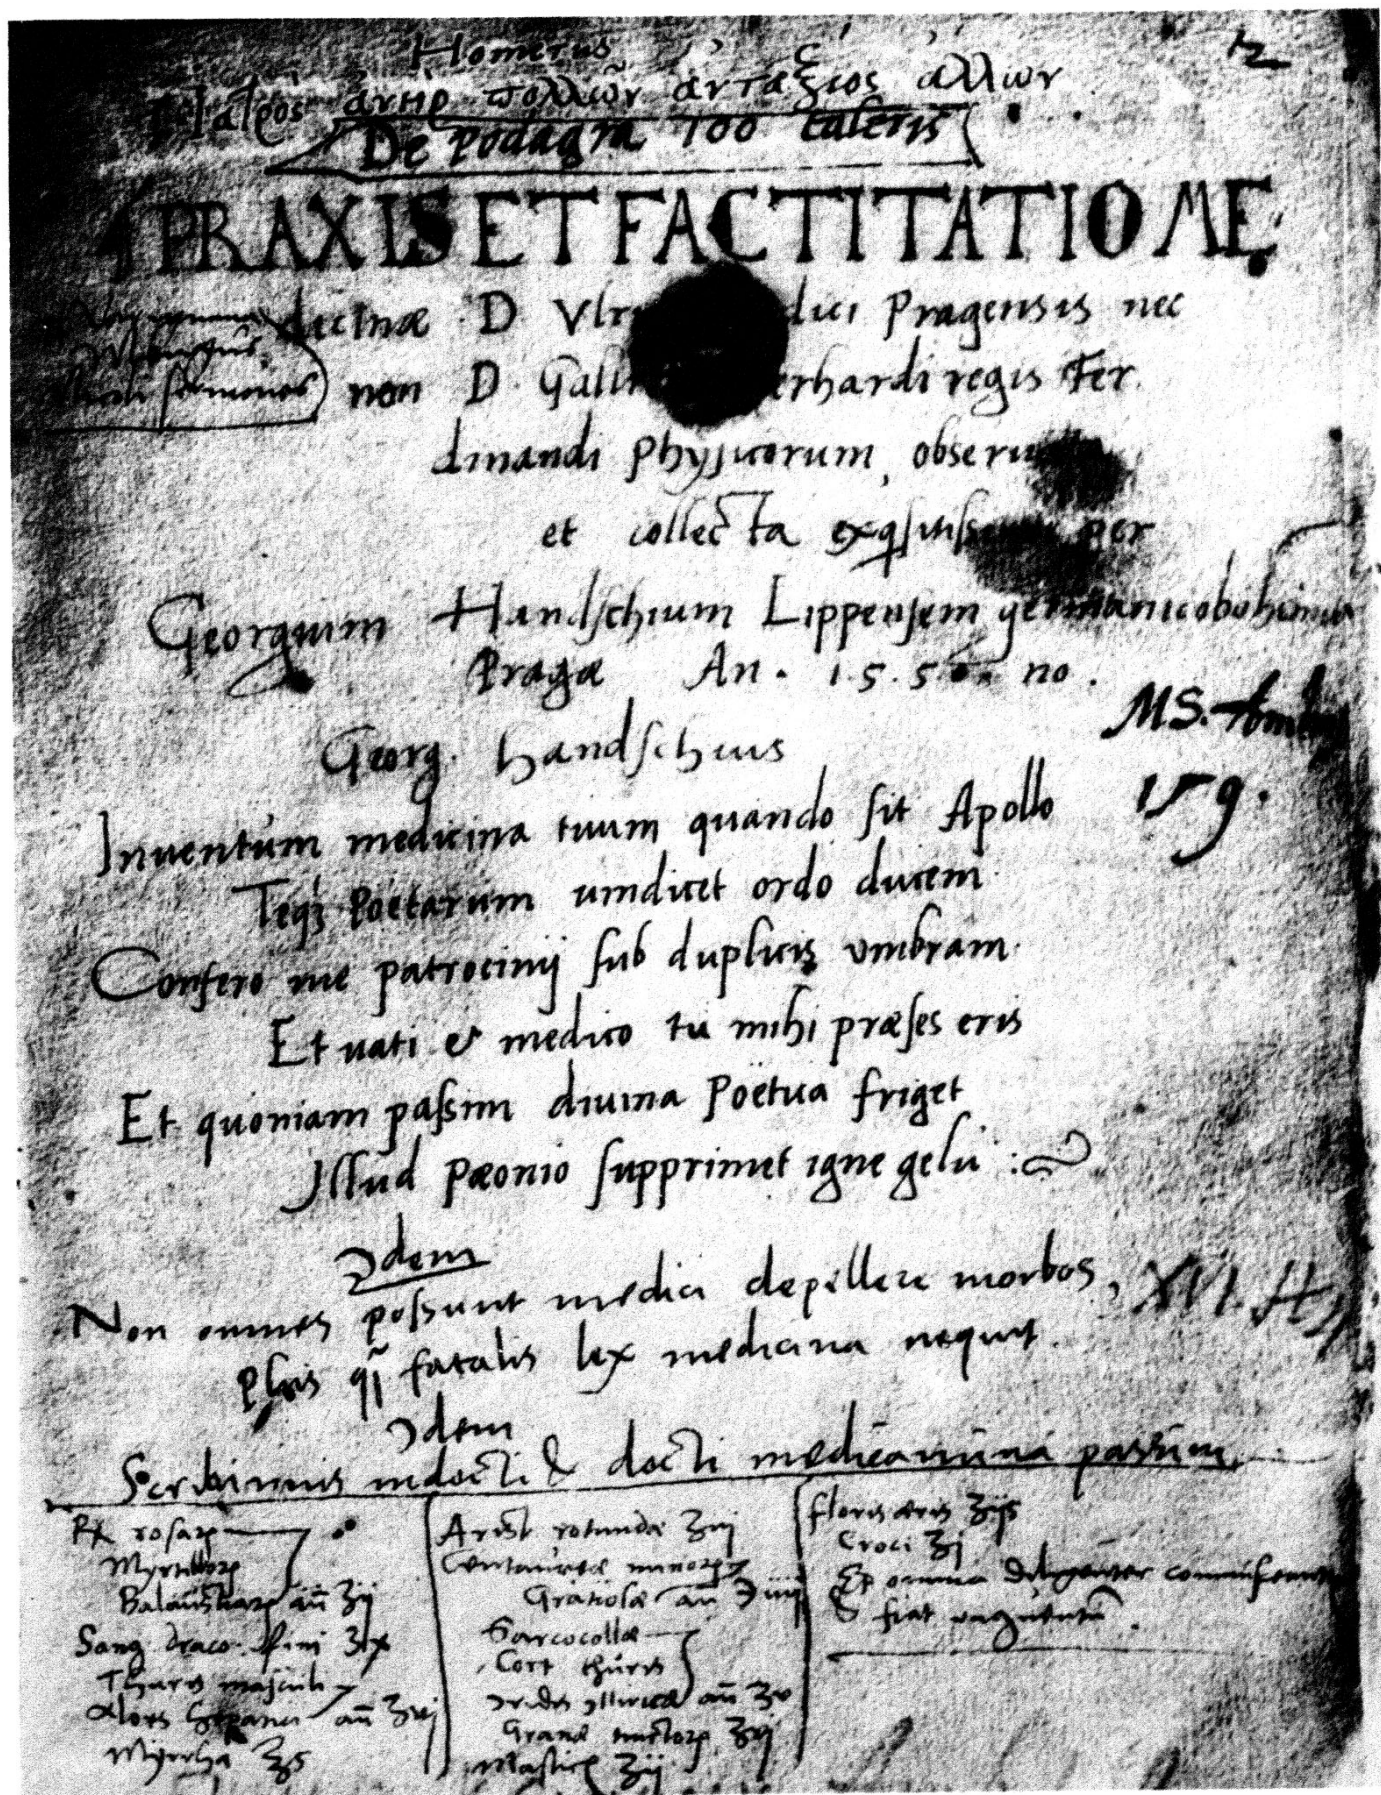 Homerus
Ἰατρὸς ἀνὴρ πολλῶν ἀντάξιος ἄλλων
12
De podagra 100 taleris
PRAXIS ET FACTITATIO ME
dicinæ D Vlr dici Pragensis nec
sermones
non D. Galli erhardi regis Fer
dinandi physicorum, obseru
et collecta exqsitiss per
Georgium Handschium Lippensem germanicobohemum
Pragæ An. 1.5.5 no.
MS. Amb
Georg. Handschius
159.
Inuentum medicina tuum quando sit Apollo
Teqꝫ Poëtarum uindicet ordo ducem
Confero me patrocinij sub duplicis vmbram
Et uati & medico tu mihi præses eris
Et quoniam passim diuina Poëtica friget
Illud pæonio supprimet igne gelu :
Idem
Non omnes possunt medici depellere morbos,
XVI. H
Plus qͥ fatalis lex medicina nequit.
Idem
Scribimus indocti & docti medicamina passim
℞ rosarꝫ
Myrtillorꝫ
Balaustiarꝫ añ ʒij
Sang draco fini ʒix
Thuris masculi
Aloes añ ʒvj
Myrrha ʒs
Arist rotundæ ʒvj
Centaureæ minorꝫ
Gratiolæ añ ʒiiij
Sarcocollæ
Cort thuris
Iridis illiricæ añ ʒv
Grana ʒvj
Mastic ʒij
floris æris ʒijs
Croci ʒj
Et omnia diligenter
& fiat unguentū.